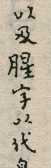 以及腥字以代